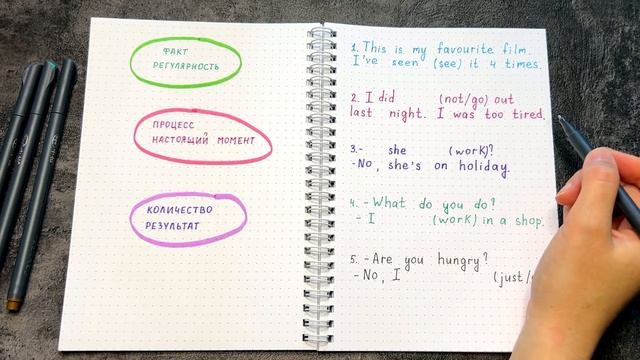 ФАКТ
РЕГУЛЯРНОСТЬ
ПРОЦЕСС
НАСТОЯЩИЙ МОМЕНТ
КОЛИЧЕСТВО
РЕЗУЛЬТАТ
1. This is my favourite film.
I've seen (see) it 4 times.
2. I did (not/go) out
last night. I was too tired.
3.- she (work)?
-No, she's on holiday.
4. - What do you do?
- I (work) in a shop.
5. - Are you hungry?
- No, I (just/